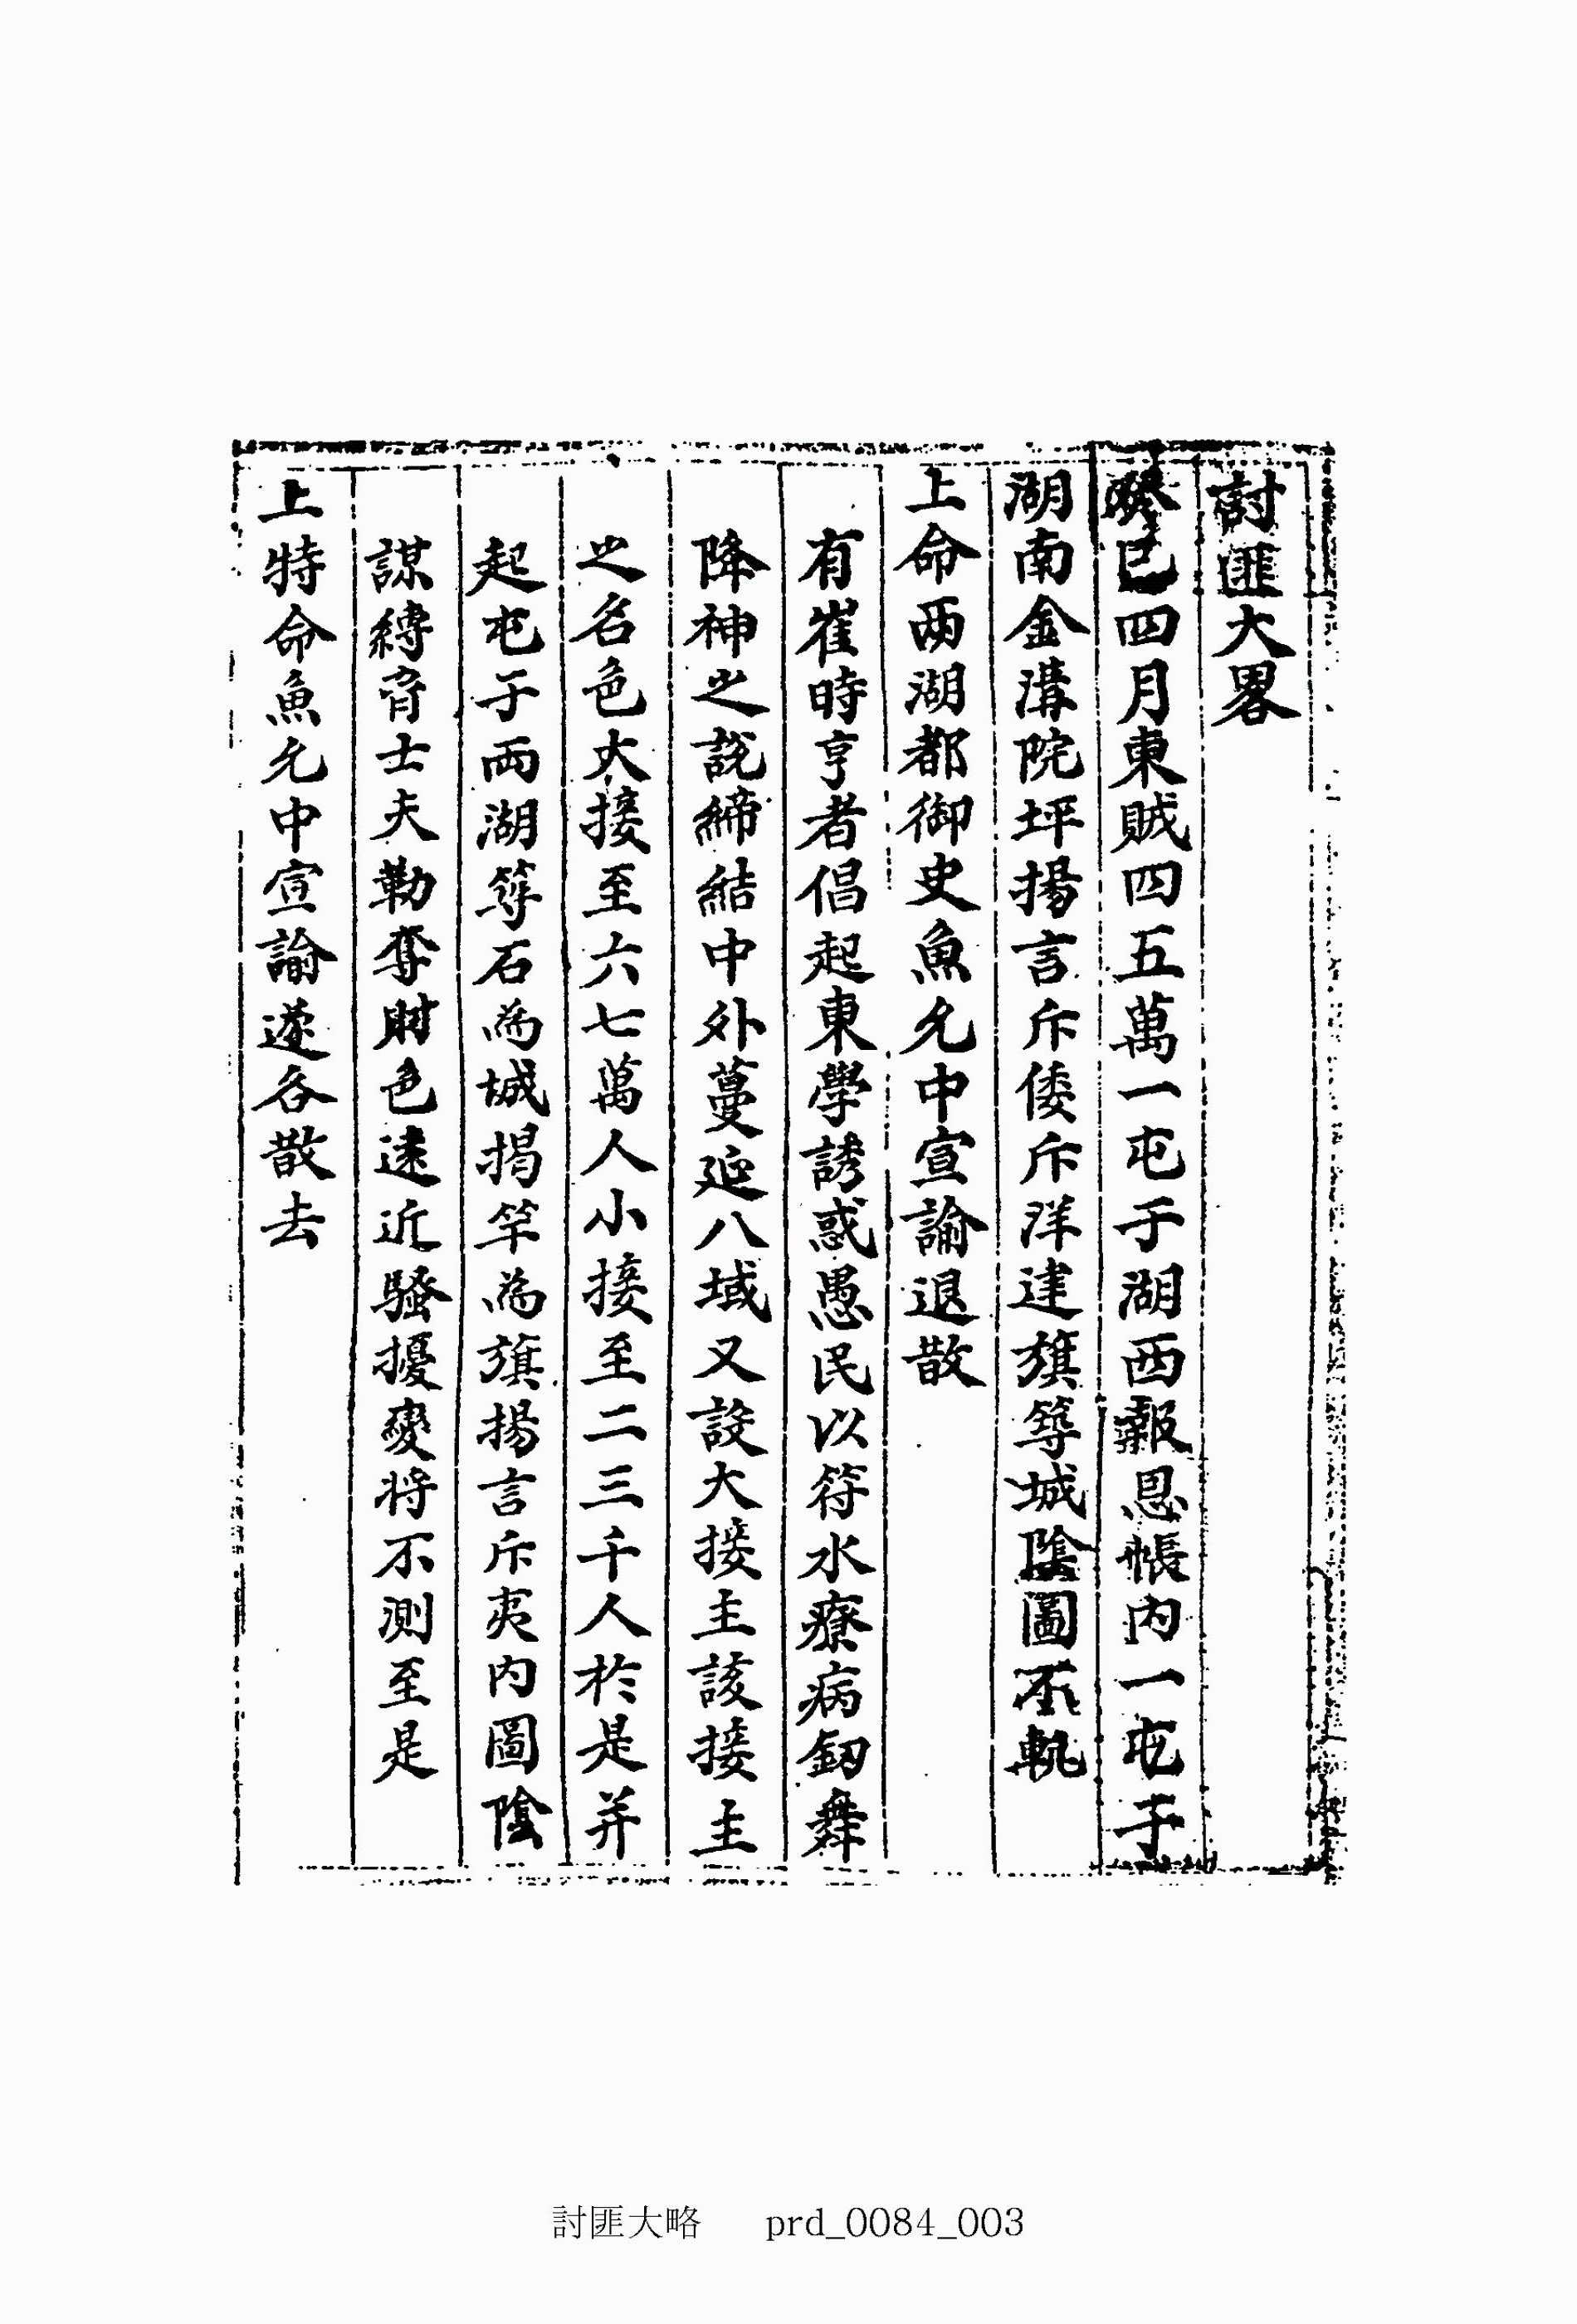 討匪大畧
癸巳四月東賊四五萬一屯于湖西報恩帳內一屯于
湖南金溝院坪揚言斥倭斥洋建旗等城陰圖不軌
上命兩湖都御史魚允中宣諭退散
有崔時亨者倡起東學誘惑愚民以符水療病釰舞
降神之說締結中外蔓延八域又設大接主該接主
之名色大接至六七萬人小接至二三千人於是并
起屯于兩湖等石爲城揭竿爲旗揚言斥夷內圖陰
謀縛脅士夫勒奪財色遠近騷擾變將不測至是
上特命魚允中宣諭遂各散去
討匪大略 prd_0084_003